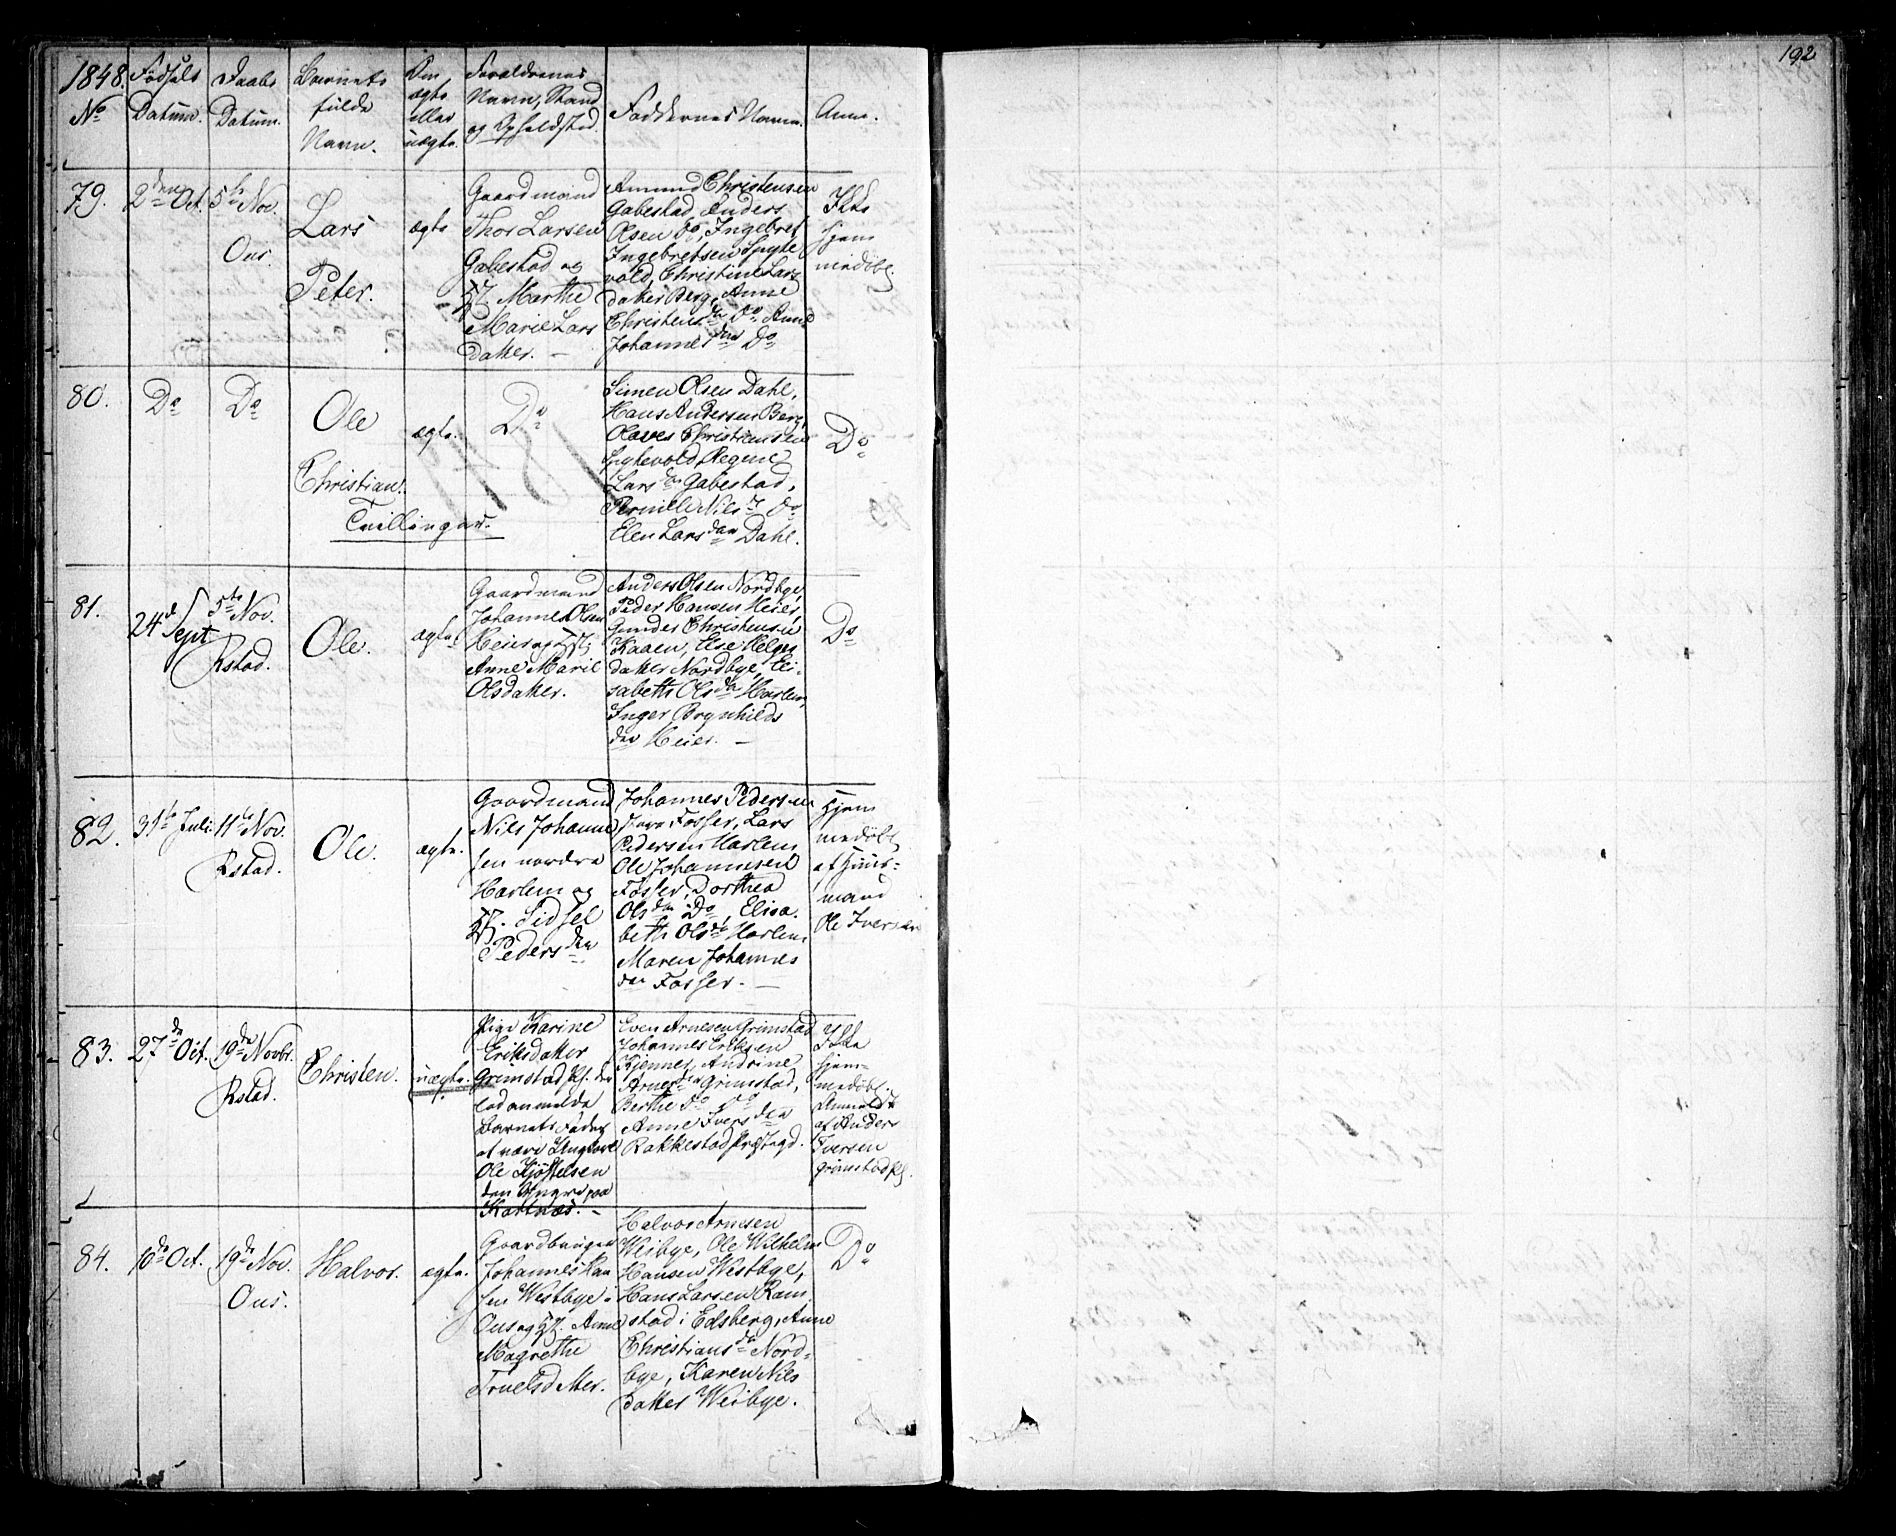 192
1848.
No
Fødsels
Datum.
Daabs
Datum.
Barnets
fulde
Navn.
Om
ægte
eller
uægte.
Forældrenes
Navn, Stand
og Opholdsted.
Faddernes Navne.
Anm.
79.
2den Oct.
5te Nov.
Ous.
Lars
Peter.
ægte
Gaardmand
Thor Larsen
Gabestad og
H. Marthe
Marie Lars
datter. —
Amund Christensen
Gabestad, Anders
Olsen Do, Ingebret
Ingebretsen Spyte
vold, Christine Lars
datter Berg, Anne
Christensdr Do, Anne
Johannesdtr Do
Ikke
hjem
medøbt
80.
Do
Do
Ole
Christian.
Tvillinger.
ægte.
Do
Simen Olsen Dahl,
Hans Andersen Berg,
Olaves Christiansen
Spytevold, Regine
Larsdr Gabestad,
Pernille Nilsd. Do
Elen Larsdatter Dahl.
Do
81.
24d Sept
5te Nov.
Rstad.
Ole.
ægte
Gaardmand
Johannes Olsen
Heier og H.
Anne Marie
Olsdatter.
Anders Olsen Nordbye,
Peder Hansen Heier,
Gunder Christensen
Kaaen, Else Helges
datter Nordbye, Eli-
sabeth Olsdr Harlem,
Inger Brynhilds
der Heier. —
Do
82.
31te Juli
11te Nov.
Rstad.
Ole.
ægte.
Gaardmand
Nils Johanne
sen nordre
Harlem og
H. Sidsel
Pedersdtr
Johannes Pedersen
Fosser, Lars
Pedersen Harlem
Ole Johannesen
Fosser, Dorthea
Olsdtr Do, Elisa-
beth Olsdr Harlem
Maren Johannes
der Fosser. —
Hjem
medøbt
af Huus-
mand
Ole Iversen
83.
27de Oct.
19de Novbr.
Rstad.
Christen.
uægte.
Pige Karine
Eriksdatter
Grimstad Ej. der
lod anmelde
Barnets Fader
at være Ungkarl
Ole Kjøstelsen
den Yngre paa
Kattnæs. —
Even Arnesen Grimstad
Johannes Eriksen
Kjennes, Andrine
Arnesdtr Grimstad,
Berthe Do Do
Anne Iversdtr
Rakkestad Præstegd.
Ikke
hjem-
medøbt.
Anmeldt
af Anders
Iversen
Grimstad Ej.
84.
10de Oct.
19de Nov.
Ous.
Halvor.
ægte.
Gaardbruger
Johannes Han
sen Westbye i
Ous og H. Anne
Magrethe
Truelsdtter.
Halvor Arnesen
Weibye, Ole Wilhelm
Hansen Westbye,
Hans Larsen Ram
stad i Edsberg, Anne
Christiansdr Nord-
bye, Karen Nils
datter Weibye.
Do